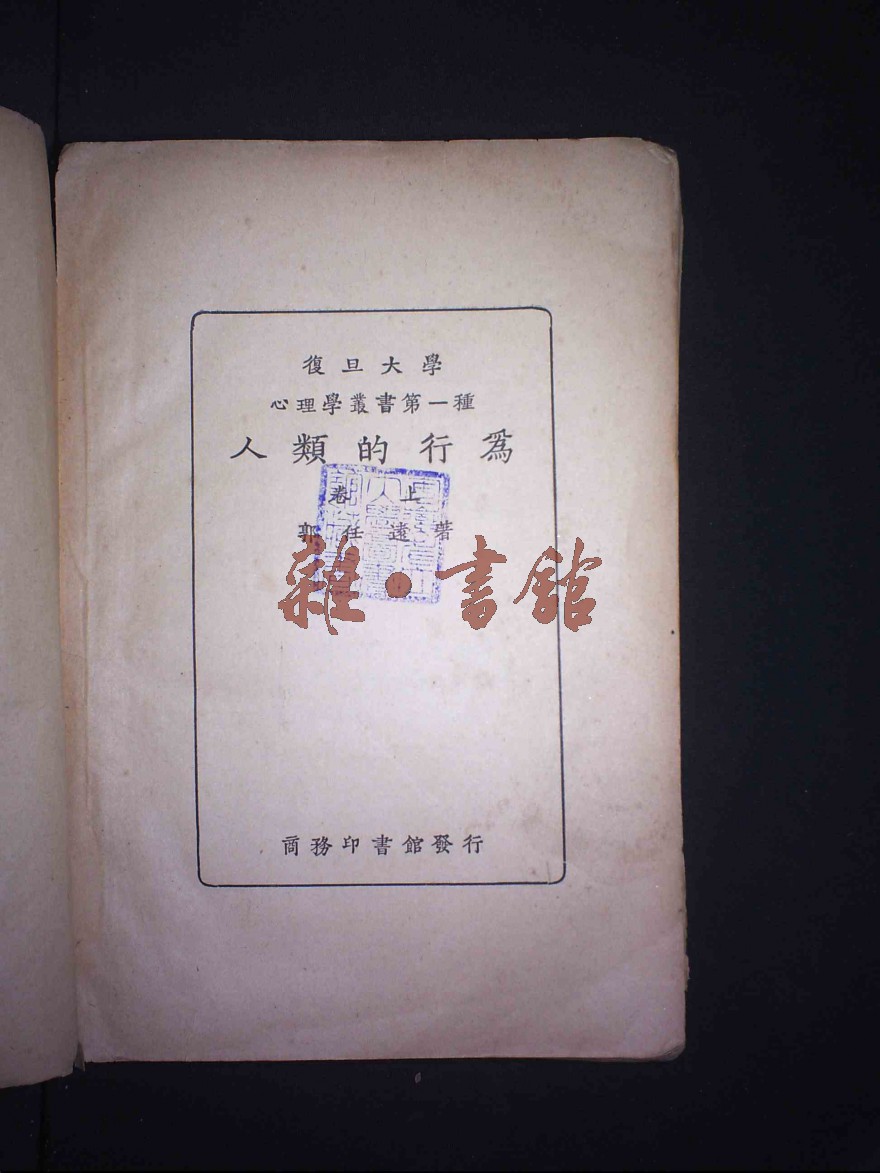 復旦大學
心理學叢書第一種
人類的行爲
卷上
郭任遠著
雜·書館
商務印書館發行